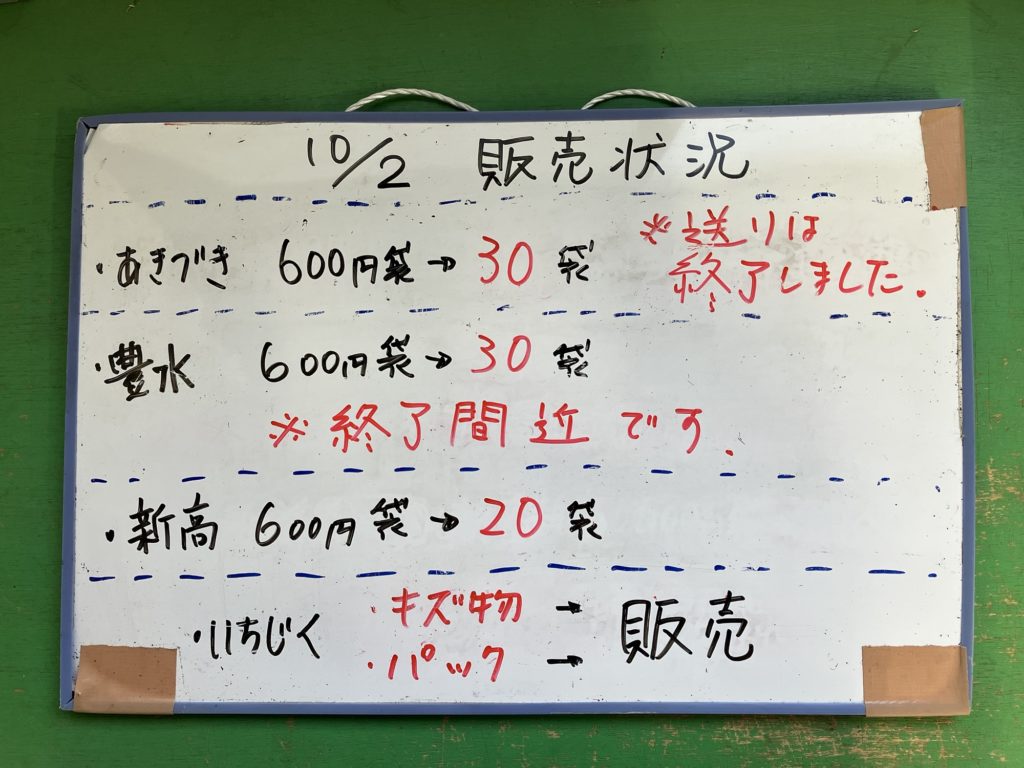 10/2 販売状況
・あきづき 600円袋→30袋 ※送りは
終了しました.
・豊水 600円袋→30袋
※終了間近です.
・新高 600円袋→20袋
・いちじく ・キズ物→ 販売
・パック→